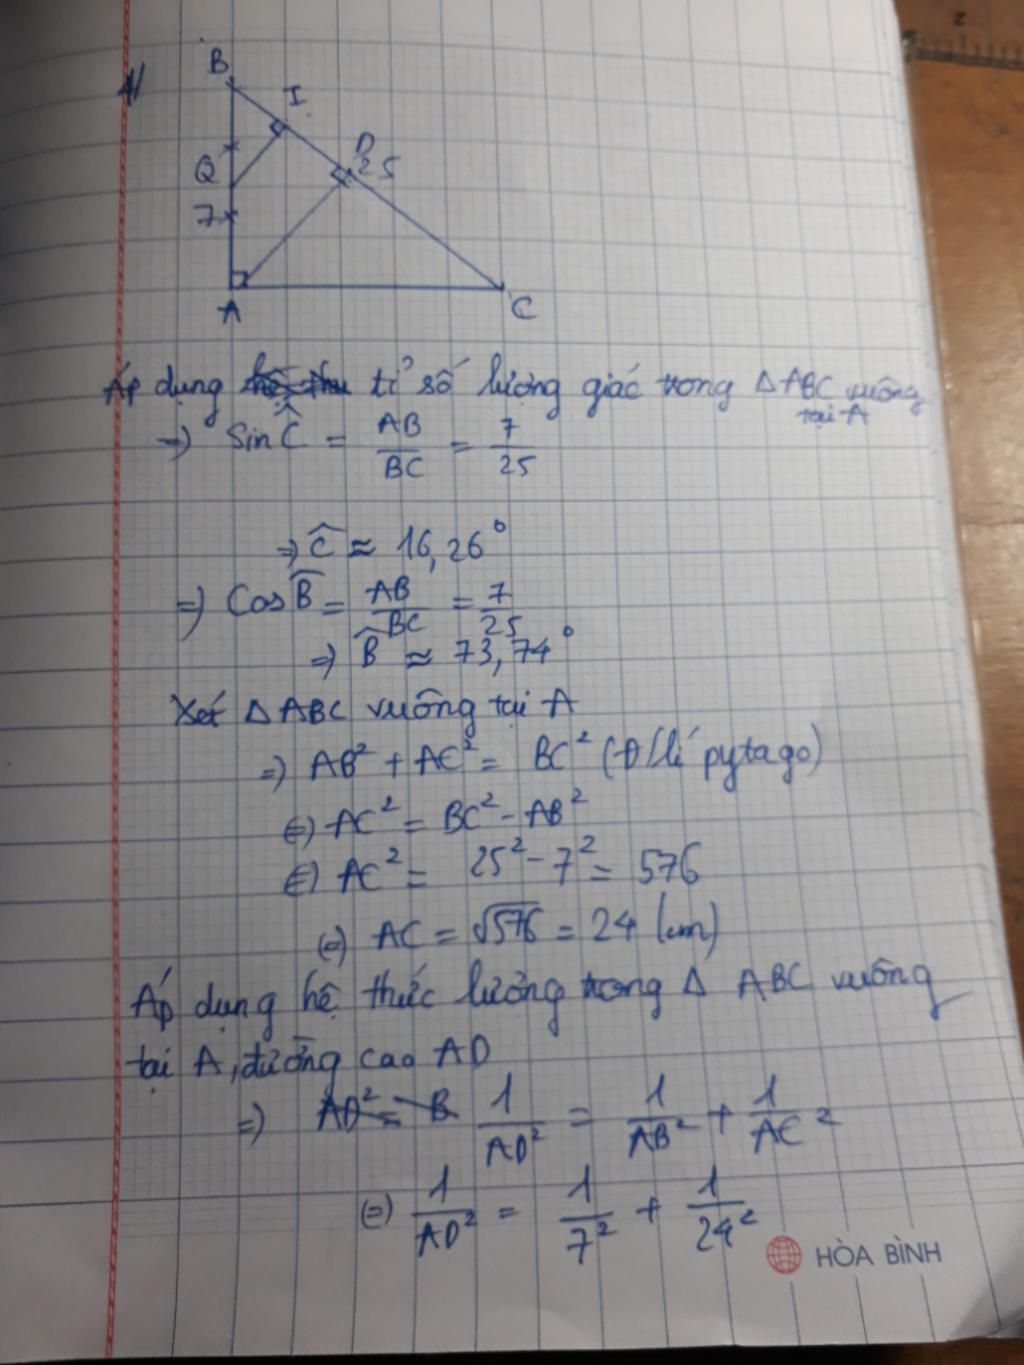 4/
B
I
D
25
Q
7
A
C
Áp dụng tỉ số lượng giác trong Δ ABC vuông tại A
=) Sin Ĉ = AB/BC = 7/25
=) Ĉ ≈ 16,26°
=) Cos B̂ = AB/BC = 7/25
=) B̂ ≈ 73,74°
Xét Δ ABC vuông tại A
=) AB² + AC² = BC² (Đ/lí pytago)
(=) AC² = BC² - AB²
(=) AC² = 25² - 7² = 576
(=) AC = √576 = 24 (cm)
Áp dụng hệ thức lượng trong Δ ABC vuông
tại A, đường cao AD
=) 1/AD² = 1/AB² + 1/AC²
(=) 1/AD² = 1/7² + 1/24²
HÒA BÌNH